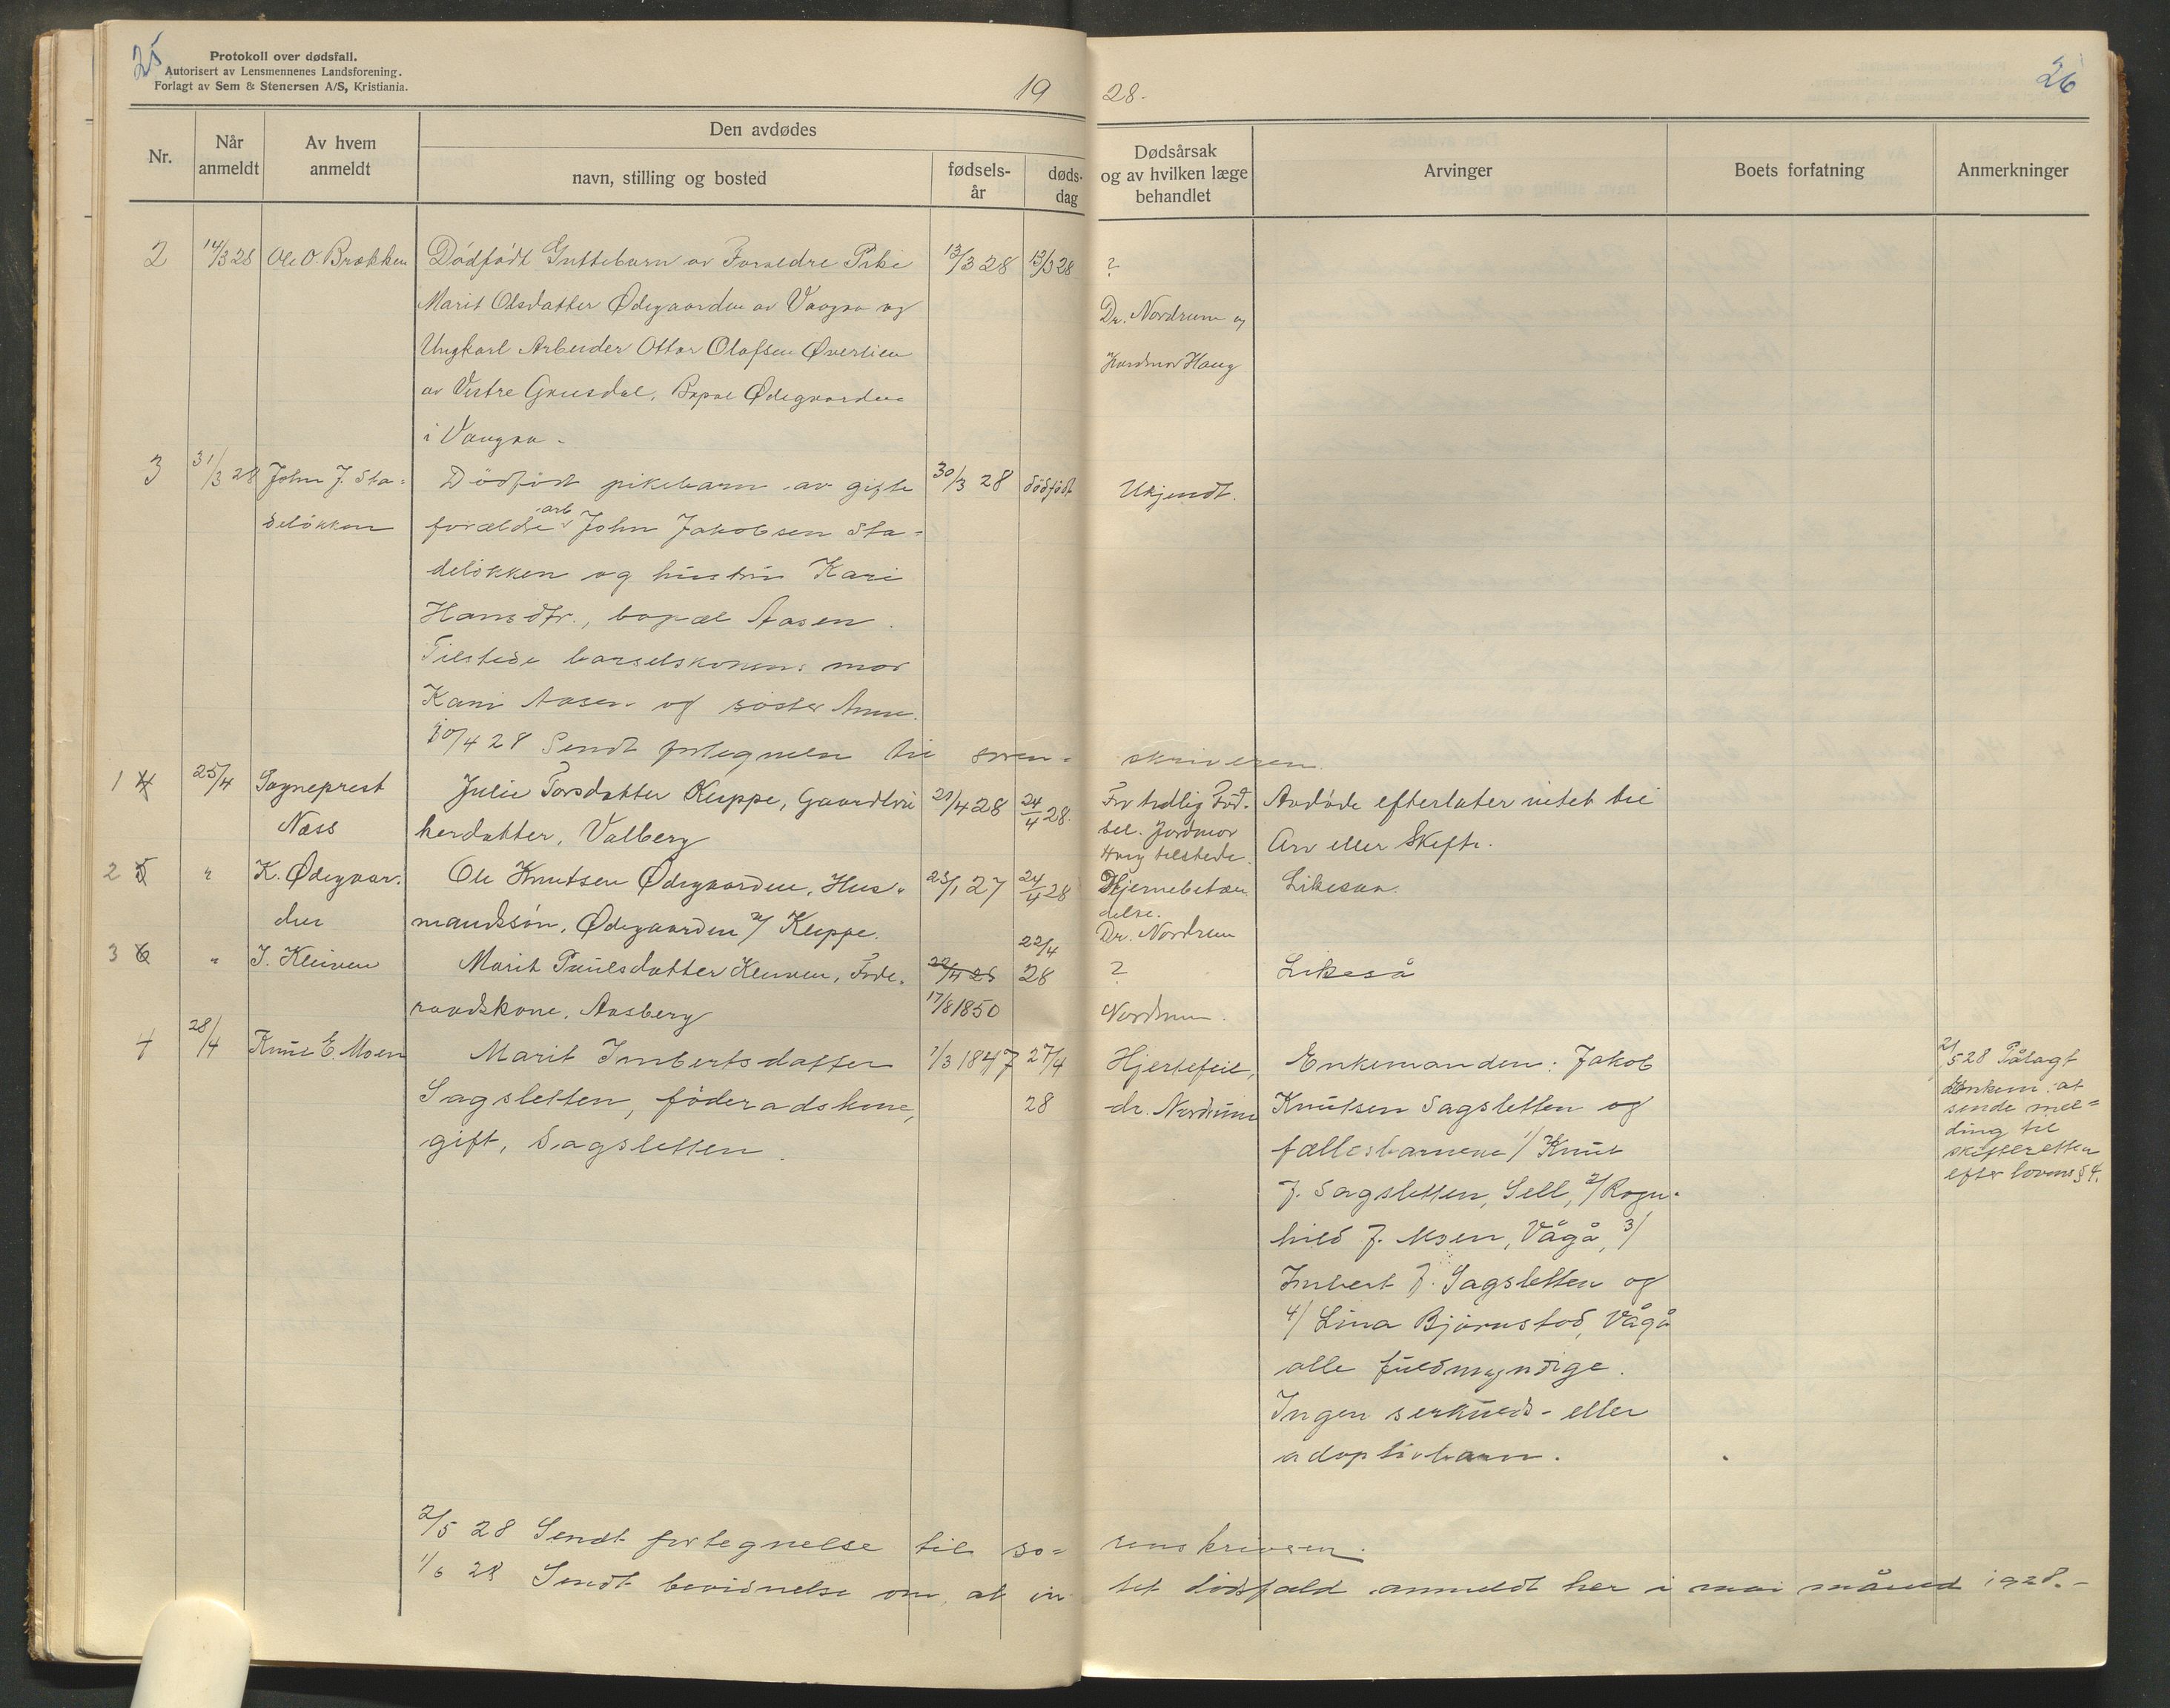 25
Protokoll over dødsfall.
Autorisert av Lensmennenes Landsforening.
Forlagt av Sem & Stenersen A/S, Kristiania.
19 28.
26
Nr.
Når anmeldt
Av hvem anmeldt
Den avdødes
navn, stilling og bosted
fødsels-
år
døds-
dag
Dødsårsak
og av hvilken læge
behandlet
Arvinger
Boets forfatning
Anmerkninger
2
14/3 28
Ole O. Brækken
Dødfødt Guttebarn av Forældre Pike
Marit Olsdatter Ødegaarden av Vaaga og
Ungkarl Arbeider Ottar Olafsen Øverlien
av Vestre Gausdal. Bopæl Ødegaarden
i Vaaga.
13/3 28
13/3 28
?
Dr. Nordrum og
Jordmor Haug
3
31/3 28
John J. Sta-
deløkken
Dødfødt pikebarn av gifte
forældre arb John Jakobsen Sta-
deløkken og hustru Kari
Hansdtr., bopæl Aasen.
Tilstede barselskonens mor
Kari Aasen og søster Anne.
30/3 28
dødfødt
Ukjendt.
10/4 28 Sendt fortegnelse til soren- skriveren.
1 4
25/4
Sogneprest
Næss
Julie Torsdatter Kleppe, Gaardbru
kerdatter, Valberg
21/4 28
24/4 28.
For tidlig Fød-
sel. Jordmor
Haug tilstede.
Avdøde efterlater intet til
Arv eller Skifte.
2 5
"
K. Ødegaar-
den
Ole Knutsen Ødegaarden, Hus-
mandssøn, Ødegaarden u/ Kleppe.
23/1 27
24/4 28
Hjernebetæn
delse.
Dr. Nordrum
Likesaa.
3 6
"
I. Kleiven
Marit Paulsdatter Kleiven, Føde-
raadskone, Aasberg
22/4 28
17/8 1850
22/4
28
?
Nordrum.
Likeså
4
28/4
Knut E. Moen
Marit Imbertsdatter
Sagsletten, føderadskone,
gift, Sagsletten.
1/3 1847
27/4
28
Hjertefeil,
dr. Nordrum
Enkemanden: Jakob
Knutsen Sagsletten og
fællesbarnene 1/ Knut
J. Sagsletten, Sell, 2/ Ragn-
hild J. Moen, Vågå, 3/
Imbert J. Sagsletten og
4/ Lina Bjørnstad, Vågå
alle fuldmyndige.
Ingen serkuld- eller
adoptivbarn.
2/5 28 Pålagt
enkem. at
sende mel-
ding til
skifteretten
efter lovens § 4.
2/5 28 Sendt fortegnelse til so- renskriveren.
1/6 28 Sendt bevidnelse om, at in- tet dødsfald anmeldt her i mai måned 1928.-